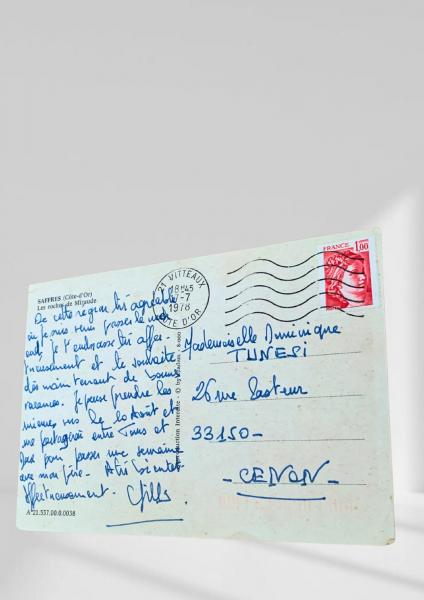 SAFFRES (Côte-d'Or)
Les roches de Mirande
De cette région très agréable
où je suis venu passer le week
end, je t'embrasse très affec-
tueusement et te souhaite
dès maintenant de bonnes
vacances. Je pense prendre les
miennes vers le 10 Août et
me partagerai entre Tunis et
pour passer une semaine
avec mon père. A très bientôt
affectueusement. Gilles
A 21.537.00.0.0038
Reproduction Interdite
21 VITTEAUX
18H45
-7
1978
CÔTE D'OR
FRANCE 1,00
Mademoiselle Dominique
TUNESI
26 rue Pasteur
33150-
- CENON -